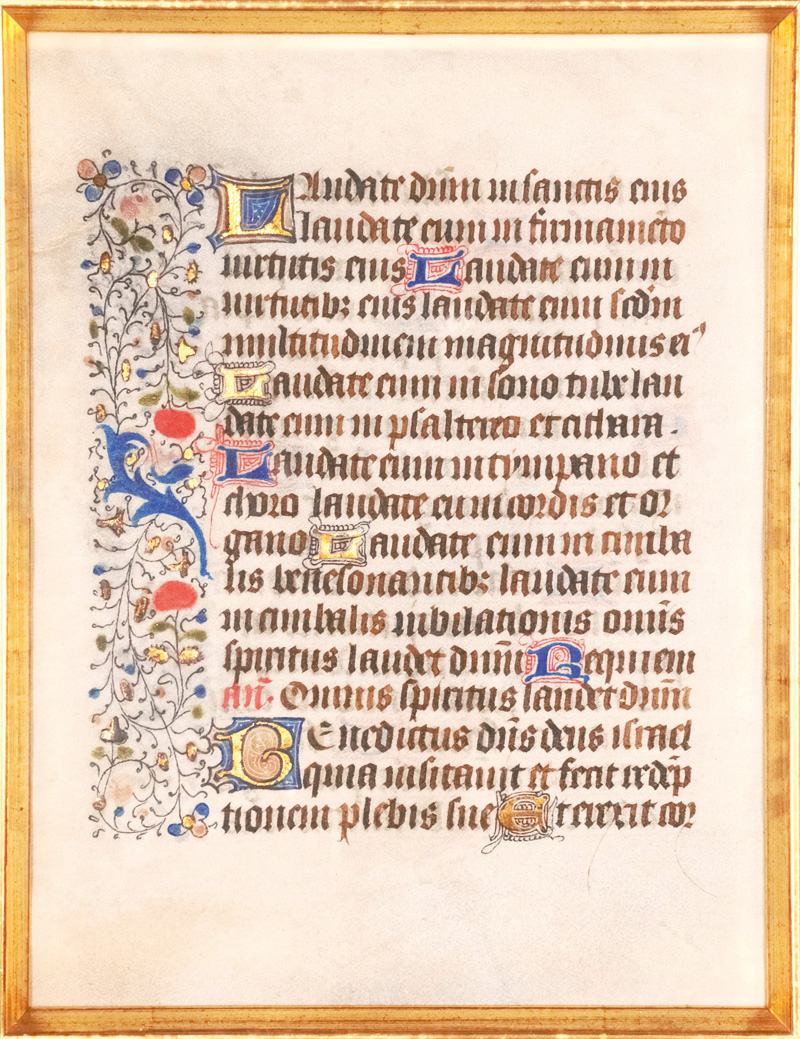 Laudate dnm in sanctis eius
laudate eum in firmamēto
virtutis eius Laudate eum in
virtutibꝫ eius laudate eum scdm
multitudinem magnitudinis ei⁹
Laudate eum in sono tube lau
date eum in psalterio et cithara .
Laudate eum in tympano et
choro laudate eum cordis et or
gano Laudate eum in cimba
lis benesonantibꝫ laudate eum
in cimbalis iubilationis omīs
spiritus laudet dnm̄ Requiem
an̄. Omnis spiritus laudet dnm̄
Benedictus dn̄s deus israel
quia visitauit et fecit redēp
tionem plebis sue Et erexit cor